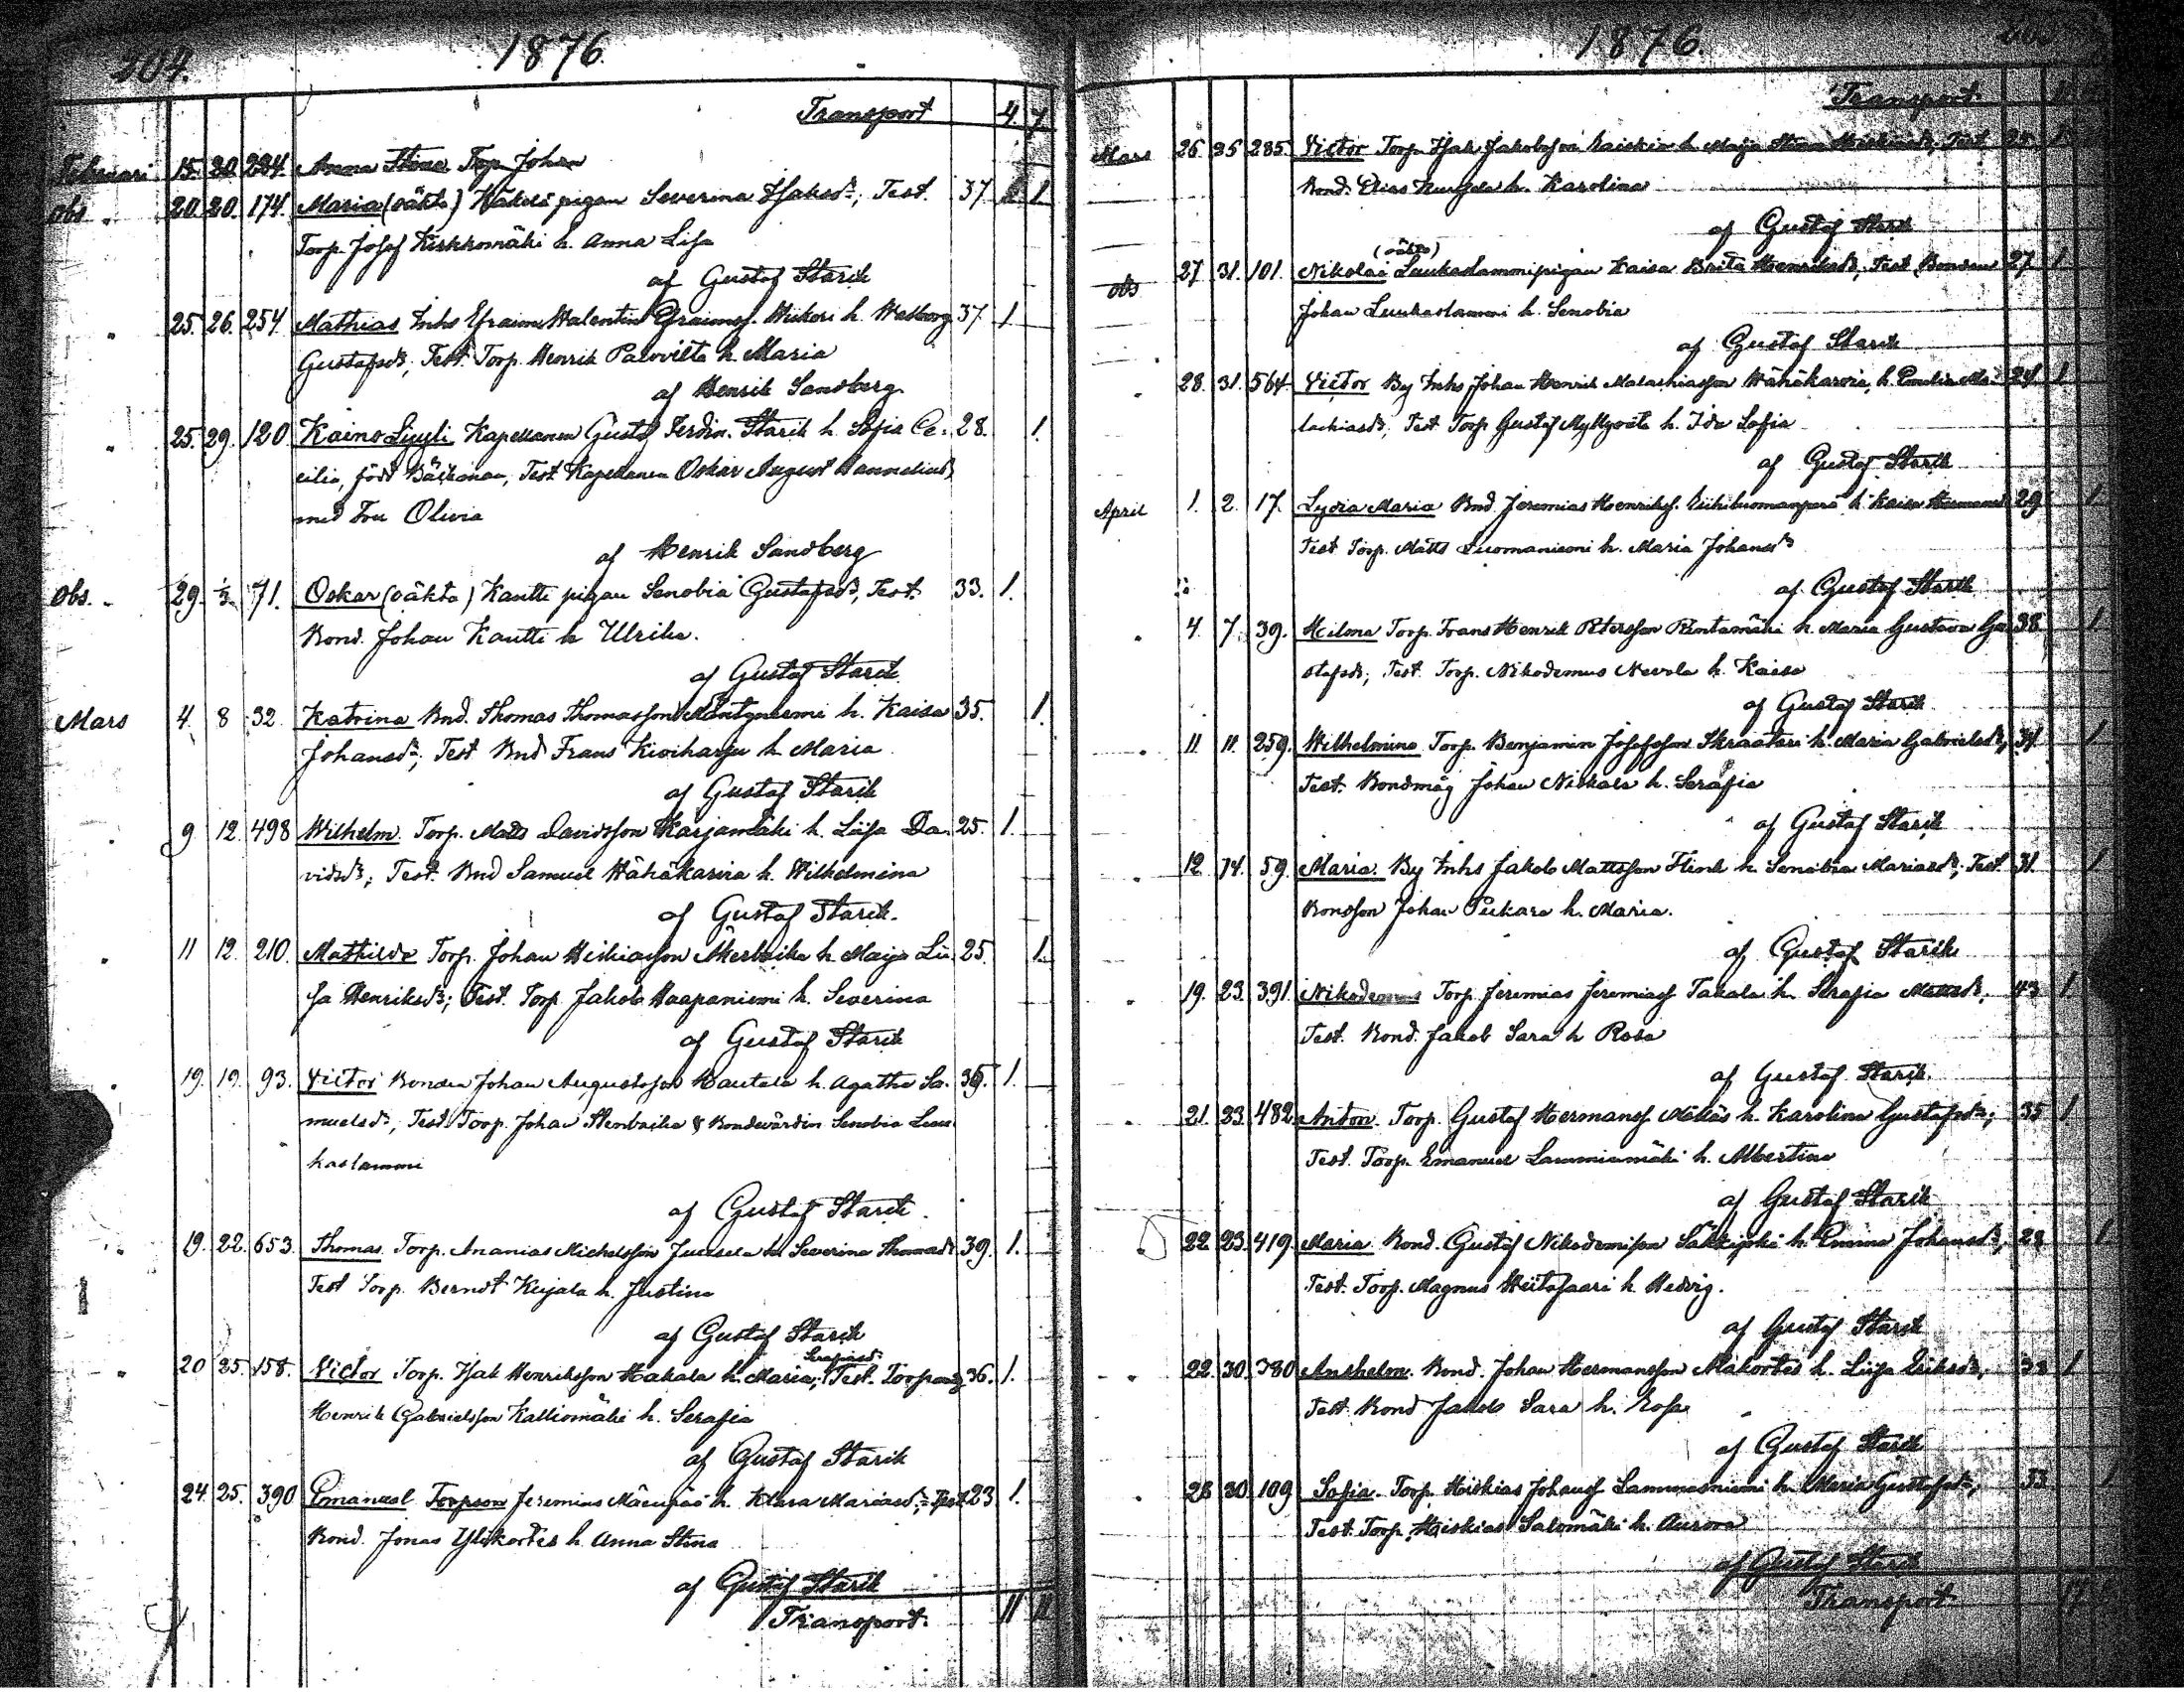 204. 1876.
Transport 4. 7
Februari 15. 20. 284. Anna Stina Torp. Johan
Obs " 20. 20. 174. Maria (oäkta) pigan Severina Isaksdr; Test. 37 1
Torp. Josef Kirkkomäki h. Anna Lisa
af Gustaf Starck
" 25. 26. 254. Mathias Inhs Efraim Walentin Efraimss. h. Walborg 37 1
Gustafsdr; Test. Torp. Henrik h. Maria
af Henrik Sandberg
" 25. 29. 120 Kaino Lyyli Kapellanen Gustaf Ferdin. Starck h. Sofia Ce- 28. 1.
cilia, född Bäckman, Test Kapellanen Oskar August
med Fru Olivia
af Henrik Sandberg
Obs. " 29. 1/3 71. Oskar (oäkta) Kantti pigan Senobia Gustafsdr, Test. 33. 1.
Bond. Johan Kantti h Ulrika.
af Gustaf Starck
Mars 4. 8 32. Katrina Bnd. Thomas Thomasson Mäntyniemi h. Kaisa 35. 1.
Johansdr; Test Bnd Frans Kiviharju h. Maria
af Gustaf Starck
" 9 12. 498 Wilhelm. Torp. Matts Davidsson Karjamäki h. Liisa Da- 25. 1.
vidsdr; Test. Bnd Samuel Wähäkarvia h. Wilhelmina
af Gustaf Starck.
" 11 12. 210. Mathilda Torp. Johan Hiskiasson Åkerbacka h. Maija Lii- 25. 1.
sa Henriksdr; Test. Torp Jakob Haapaniemi h. Severina
af Gustaf Starck
" 19. 19. 93. Victor Bonden Johan Augustsson Hautala h. Agatha Sa- 36. 1.
muelsdr, Test. Torp. Johan Stenbacka & Bondevärdin Senobia Luu
kaslammi
af Gustaf Starck.
" 19. 22. 653. Thomas. Torp. Ananias Michelsson Juusela h. Severina Thomasdr 39. 1.
Test Torp. Berndt Kujala h. Justina
af Gustaf Starck
" 20 25. 158. Victor Torp. Isak Henriksson Hakala h. Maria Serafiasdr; Test. Torpmåg 36. 1.
Henrik Gabrielsson Kalliomäki h. Serafia
af Gustaf Starck
24. 25. 390 Emanuel Torpson Jeremias Mäenpää h. Klara Mariasdr; Test 23 1.
Bond. Jonas Ylikortes h. Anna Stina
af Gustaf Starck
Transport. 11 11
1876.
Transport
Mars 26 26 285. Victor Torp. Isak Jakobsson h. Maija Stina Hiskiasdr; Test. 25 1
Bond. Elias h. Karolina
af Gustaf Starck
obs 27 31. 101. Nikolai (oäkta) Luukaslammipigan Kaisa Brita Henriksdr; Test Bonden 27. 1.
Johan Luukaslammi h. Senobia
af Gustaf Starck
" 28. 31. 564. Victor By Inhs Johan Henrik Malachiasson Wähäkarvia, h. Emilia Ma- 24. 1
lachiasdr, Test. Torp Gustaf Myllyoita h. Ida Sofia
af Gustaf Starck
April 1. 2. 17. Lydia Maria Bnd. Jeremias Henrikss. h. Kaisa Hermansdr 29. 1.
Test Torp. Matts Luomaniemi h. Maria Johansdr
af Gustaf Starck
" 4. 7. 39. Hilma Torp. Frans Henrik Petersson Rintamäki h. Maria Gustava Gu- 38. 1
stafsdr; Test. Torp. Nikodemus Nevala h. Kaisa
af Gustaf Starck
" 11. 11. 259. Wilhelmina Torp. Benjamin Josefsson Skraatari h. Maria Gabrielsdr, 34. 1
Test. Bondmåg Johan Niskala h. Serafia
af Gustaf Starck
" 12. 14. 59. Maria. By Inhs Jakob Mattsson Flink h. Senobia Mariasdr; Test 31. 1
Bondson Johan Pukara h. Maria.
af Gustaf Starck
" 19. 23. 391. Nikodemus Torp. Jeremias Jeremiass Takala h. Serafia Mattsdr, 43 1
Test. Bond. Jakob Sara h Rosa
af Gustaf Starck.
" 21. 23. 482 Anton. Torp. Gustaf Hermanss h. Karolina Gustafsdr; 35 1
Test. Torp. Emanuel Lamminmäki h. Albertina
af Gustaf Starck
" 22 23. 419. Maria Bond. Gustaf Nikodemisson Säkkijoki h. Emina Johansdr, 28 1
Test. Torp. Magnus Hietasaari h. Hedvig.
af Gustaf Starck
" 22. 30. 380 Anshelm. Bond. Johan Hermansson h. Liisa Eriksdr, 38 1
Test Bond Jakob Sara h. Rosa
af Gustaf Starck
" 28 30 109 Sofia. Torp. Hiskias Johanss Lammasniemi h. Maria Gustafsdr, 33 1
Test. Torp. Hiskias Salomäki h. Aurora
af Gustaf Starck
Transport 17